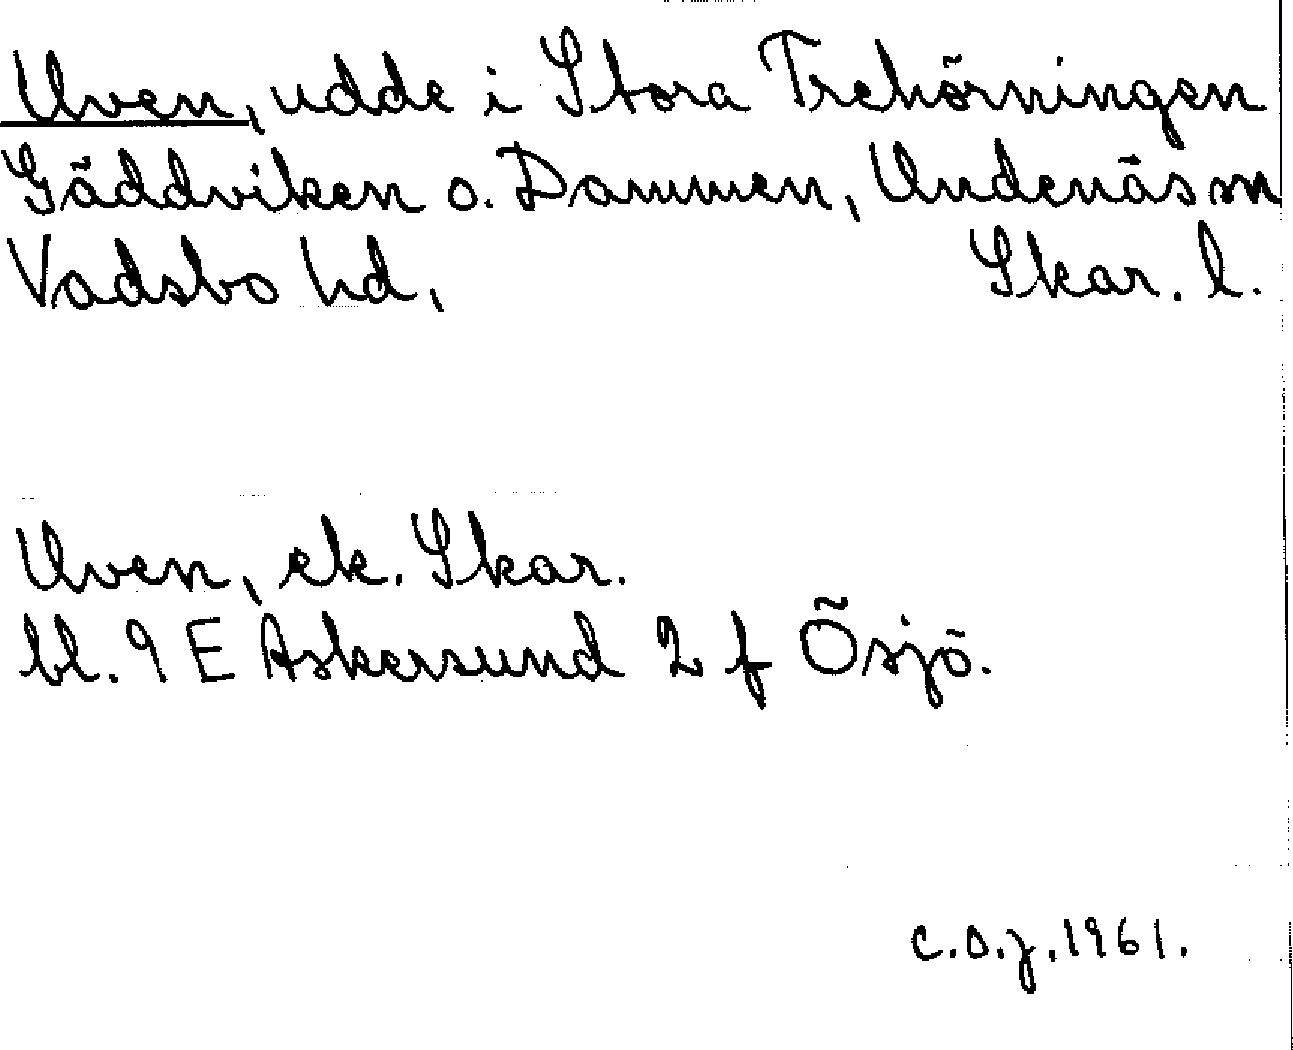 Uven, udde i Stora Trehörningen
Gäddviken o. Dammen, Undenäs sn
Vadsbo hd, Skar. l.
Uven, ek. Skar.
bl. 9 E Askersund 2 f Ösjö.
C.O.J. 1961.